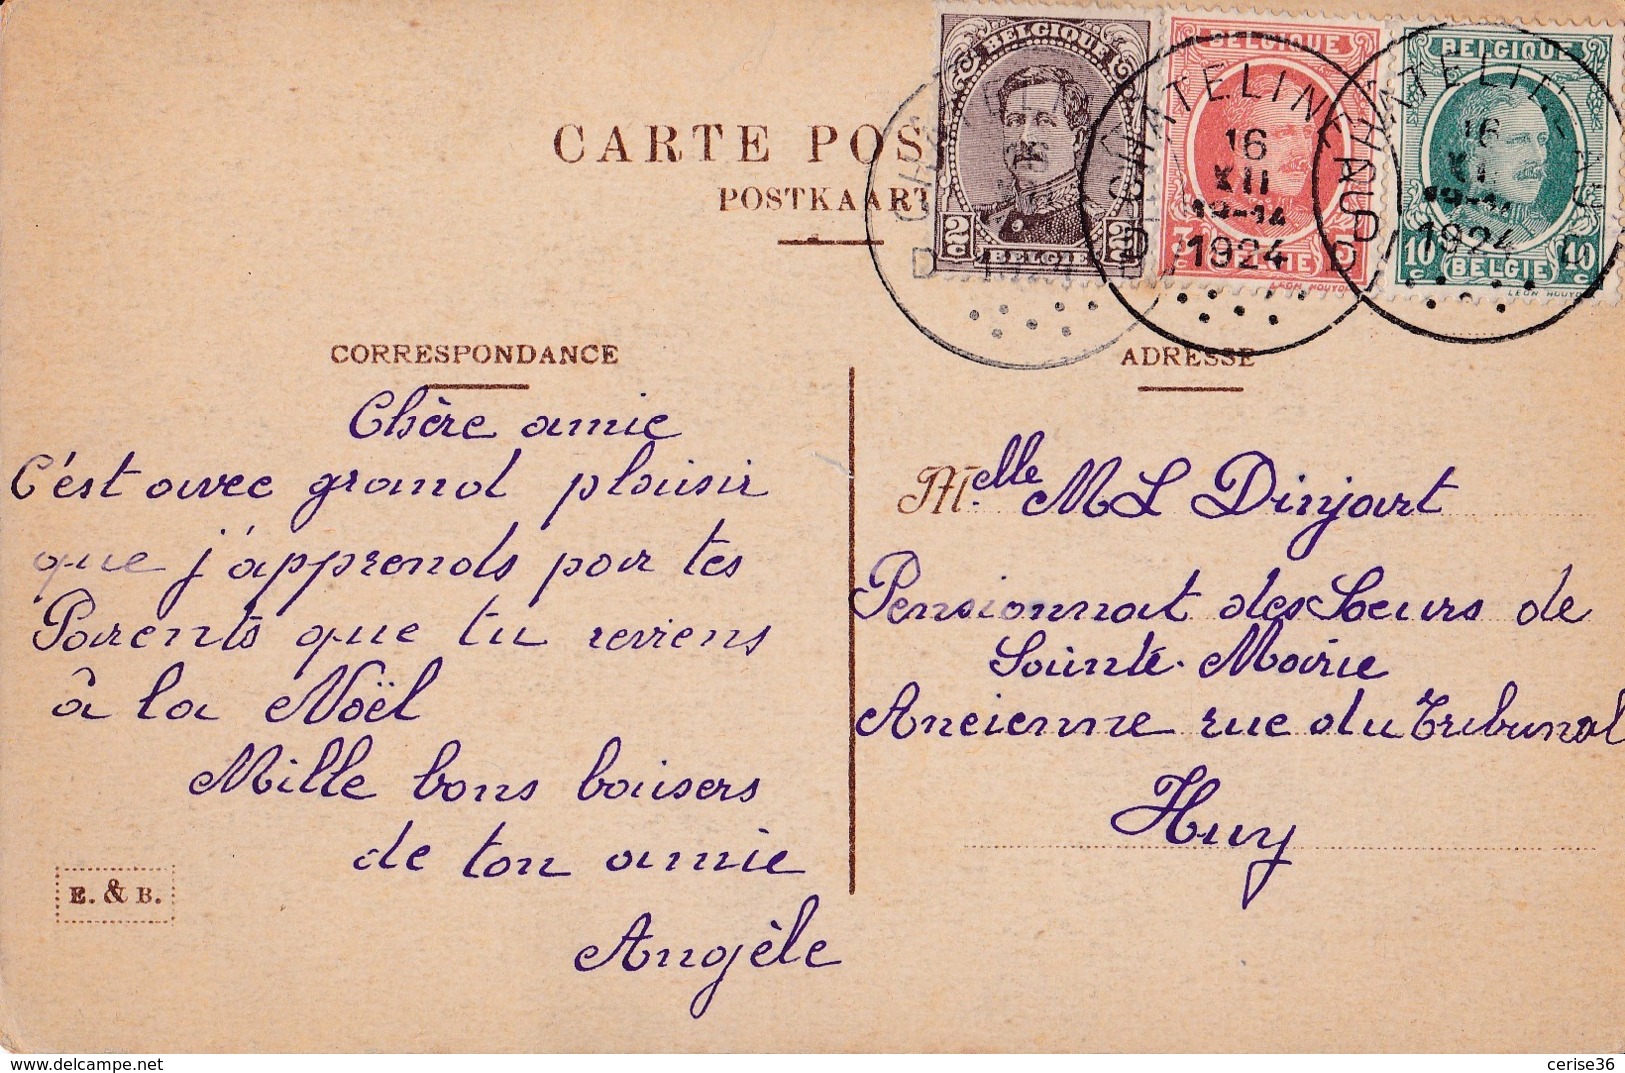 CARTE POS
POSTKAART
BELGIQUE
2c 2c
BELGIE
BELGIQUE
5c 5c
BELGIE
LEON HOUYOU
BELGIQUE
10c 10c
BELGIE
LEON HOUYO
CHATELINEAU
16
XII
1924
D D
CHATELINEAU
16
XII
1924
CORRESPONDANCE
Chère amie
C'est avec grand plaisir
que j'apprends par tes
Parents que tu reviens
à la Noël
Mille bons baisers
de ton amie
Angèle
E. & B.
ADRESSE
M.elle M L Dinjart
Pensionnat des Soeurs de
Sainte-Marie
Ancienne rue du Tribunal
Huy
delcampe.net
cerise36